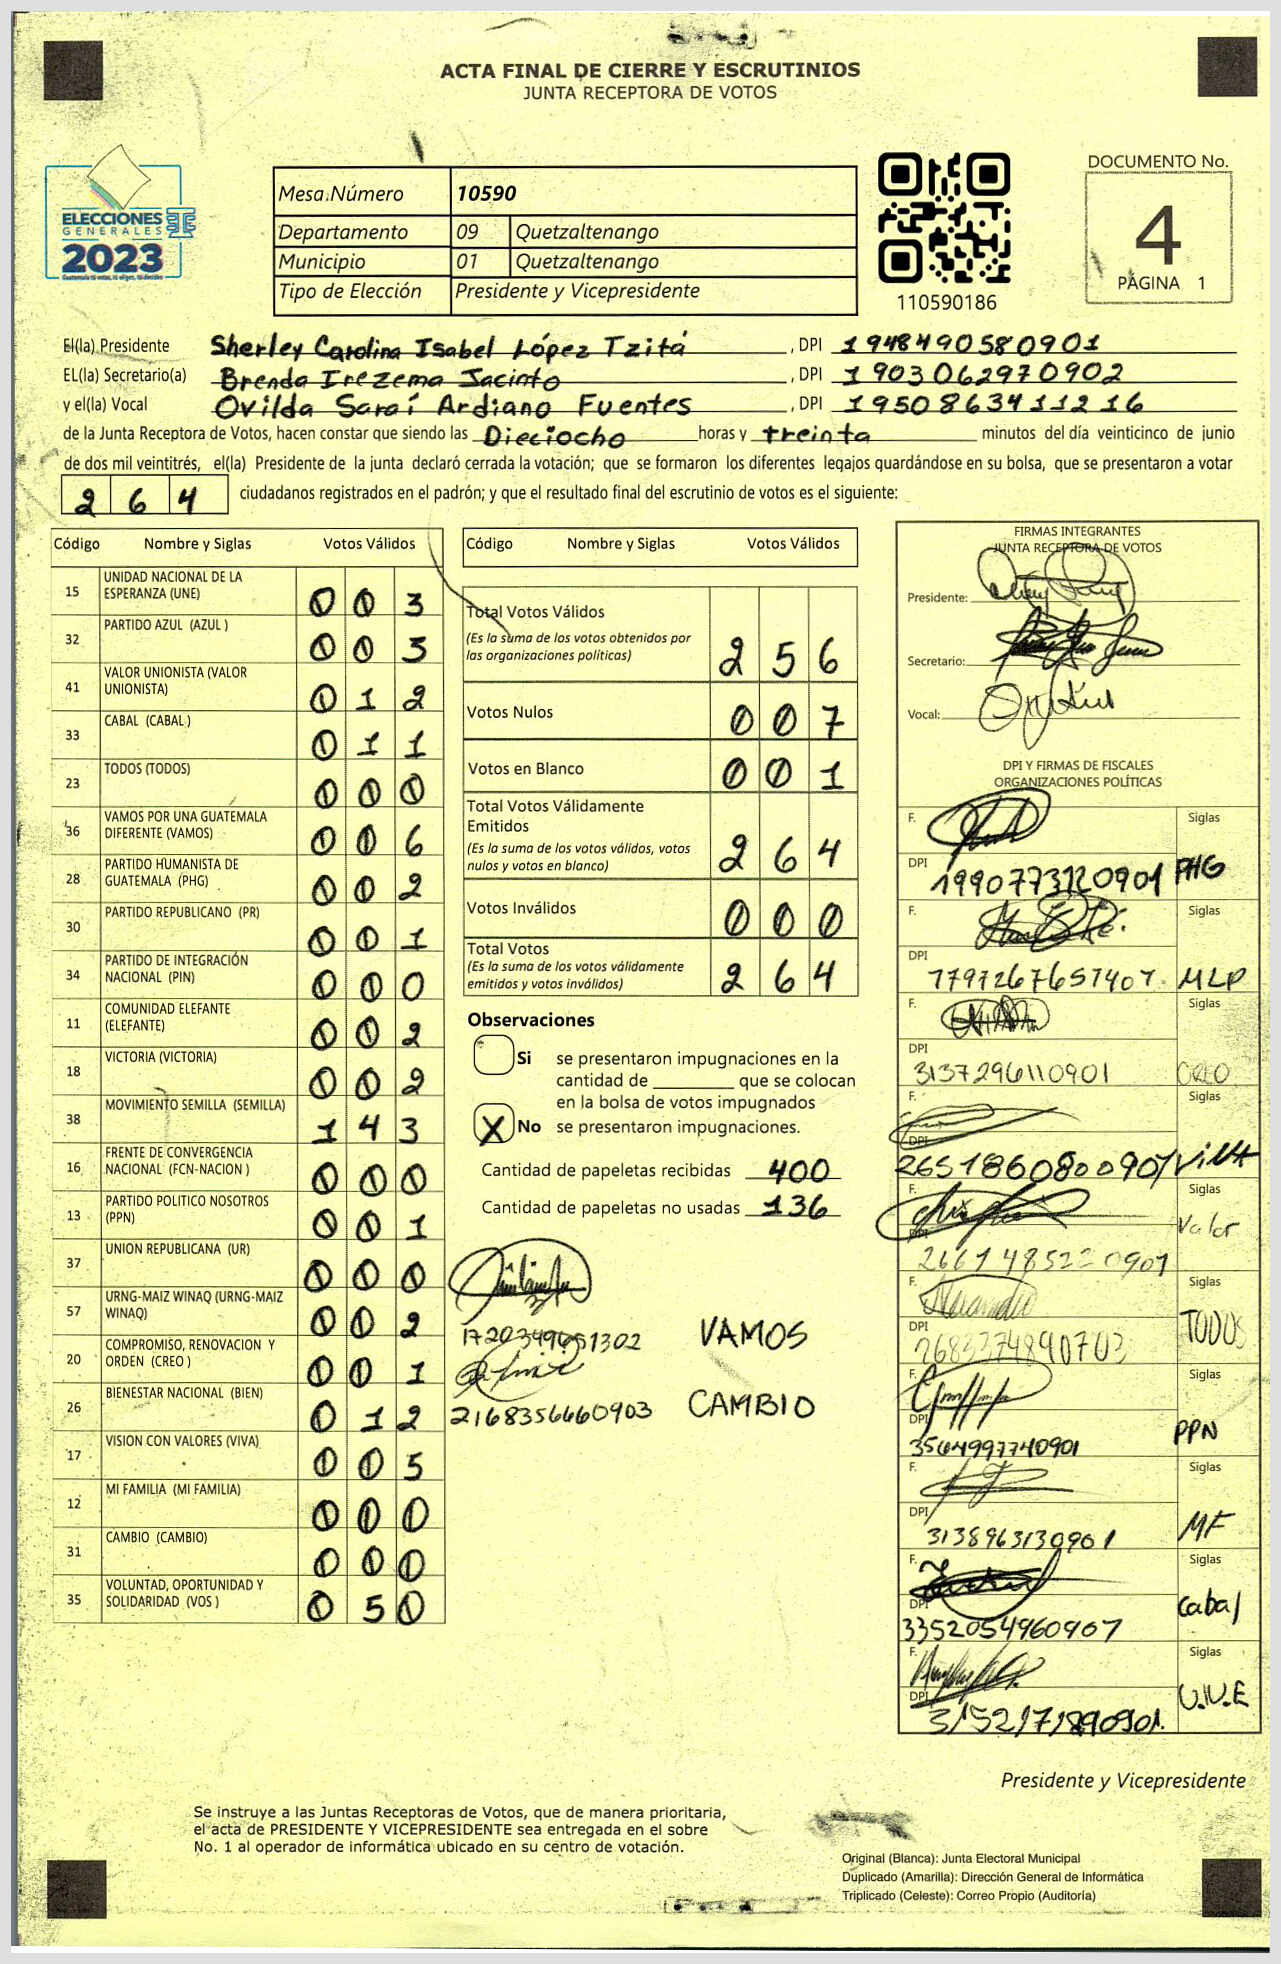 ACTA FINAL DE CIERRE Y ESCRUTINIOS
JUNTA RECEPTORA DE VOTOS
ELECCIONES
GENERALES
2023
Mesa Número 10590
Departamento 09 Quetzaltenango
Municipio 01 Quetzaltenango
Tipo de Elección Presidente y Vicepresidente
110590186
DOCUMENTO No.
4
PÁGINA 1
El(la) Presidente Sherley Carolina Isabel López Tzitá , DPI 1948490580901
EL(la) Secretario(a) Brenda Irezema Jacinto , DPI 1903062970902
y el(la) Vocal Ovilda Saraí Ardiano Fuentes , DPI 1950863411216
de la Junta Receptora de Votos, hacen constar que siendo las Dieciocho horas y treinta minutos del día veinticinco de junio
de dos mil veintitrés, el(la) Presidente de la junta declaró cerrada la votación; que se formaron los diferentes legajos guardándose en su bolsa, que se presentaron a votar
264 ciudadanos registrados en el padrón; y que el resultado final del escrutinio de votos es el siguiente:
Código Nombre y Siglas Votos Válidos
15 UNIDAD NACIONAL DE LA ESPERANZA (UNE) 003
32 PARTIDO AZUL (AZUL ) 003
41 VALOR UNIONISTA (VALOR UNIONISTA) 012
33 CABAL (CABAL ) 011
23 TODOS (TODOS) 000
36 VAMOS POR UNA GUATEMALA DIFERENTE (VAMOS) 006
28 PARTIDO HUMANISTA DE GUATEMALA (PHG) 002
30 PARTIDO REPUBLICANO (PR) 001
34 PARTIDO DE INTEGRACIÓN NACIONAL (PIN) 000
11 COMUNIDAD ELEFANTE (ELEFANTE) 002
18 VICTORIA (VICTORIA) 002
38 MOVIMIENTO SEMILLA (SEMILLA) 143
16 FRENTE DE CONVERGENCIA NACIONAL (FCN-NACION ) 000
13 PARTIDO POLITICO NOSOTROS (PPN) 001
37 UNION REPUBLICANA (UR) 000
57 URNG-MAIZ WINAQ (URNG-MAIZ WINAQ) 002
20 COMPROMISO, RENOVACION Y ORDEN (CREO ) 001
26 BIENESTAR NACIONAL (BIEN) 012
17 VISION CON VALORES (VIVA) 005
12 MI FAMILIA (MI FAMILIA) 000
31 CAMBIO (CAMBIO) 000
35 VOLUNTAD, OPORTUNIDAD Y SOLIDARIDAD (VOS ) 050
Código Nombre y Siglas Votos Válidos
Total Votos Válidos 256
(Es la suma de los votos obtenidos por
las organizaciones políticas)
Votos Nulos 007
Votos en Blanco 001
Total Votos Válidamente
Emitidos 264
(Es la suma de los votos válidos, votos
nulos y votos en blanco)
Votos Inválidos 000
Total Votos 264
(Es la suma de los votos válidamente
emitidos y votos inválidos)
Observaciones
Si se presentaron impugnaciones en la
cantidad de ________ que se colocan
en la bolsa de votos impugnados
X No se presentaron impugnaciones.
Cantidad de papeletas recibidas 400
Cantidad de papeletas no usadas 136
VAMOS
2168356660903 CAMBIO
FIRMAS INTEGRANTES
JUNTA RECEPTORA DE VOTOS
Presidente:
Secretario:
Vocal:
DPI Y FIRMAS DE FISCALES
ORGANIZACIONES POLÍTICAS
F. Siglas
DPI 1990773120901 PHG
F. Siglas
DPI MLP
F. Siglas
DPI 3137296110901 CREO
F. Siglas
DPI 2651860800901 VIVA
F. Siglas
DPI Valor
F. Siglas
DPI TODOS
F. Siglas
DPI 3564997740901 PPN
F. Siglas
DPI 3138963130901 MF
F. Siglas
DPI 3352054960907 Cabal
F. Siglas
DPI 3152171890901 U.N.E
Presidente y Vicepresidente
Se instruye a las Juntas Receptoras de Votos, que de manera prioritaria,
el acta de PRESIDENTE Y VICEPRESIDENTE sea entregada en el sobre
No. 1 al operador de informática ubicado en su centro de votación.
Original (Blanca): Junta Electoral Municipal
Duplicado (Amarilla): Dirección General de Informática
Triplicado (Celeste): Correo Propio (Auditoría)